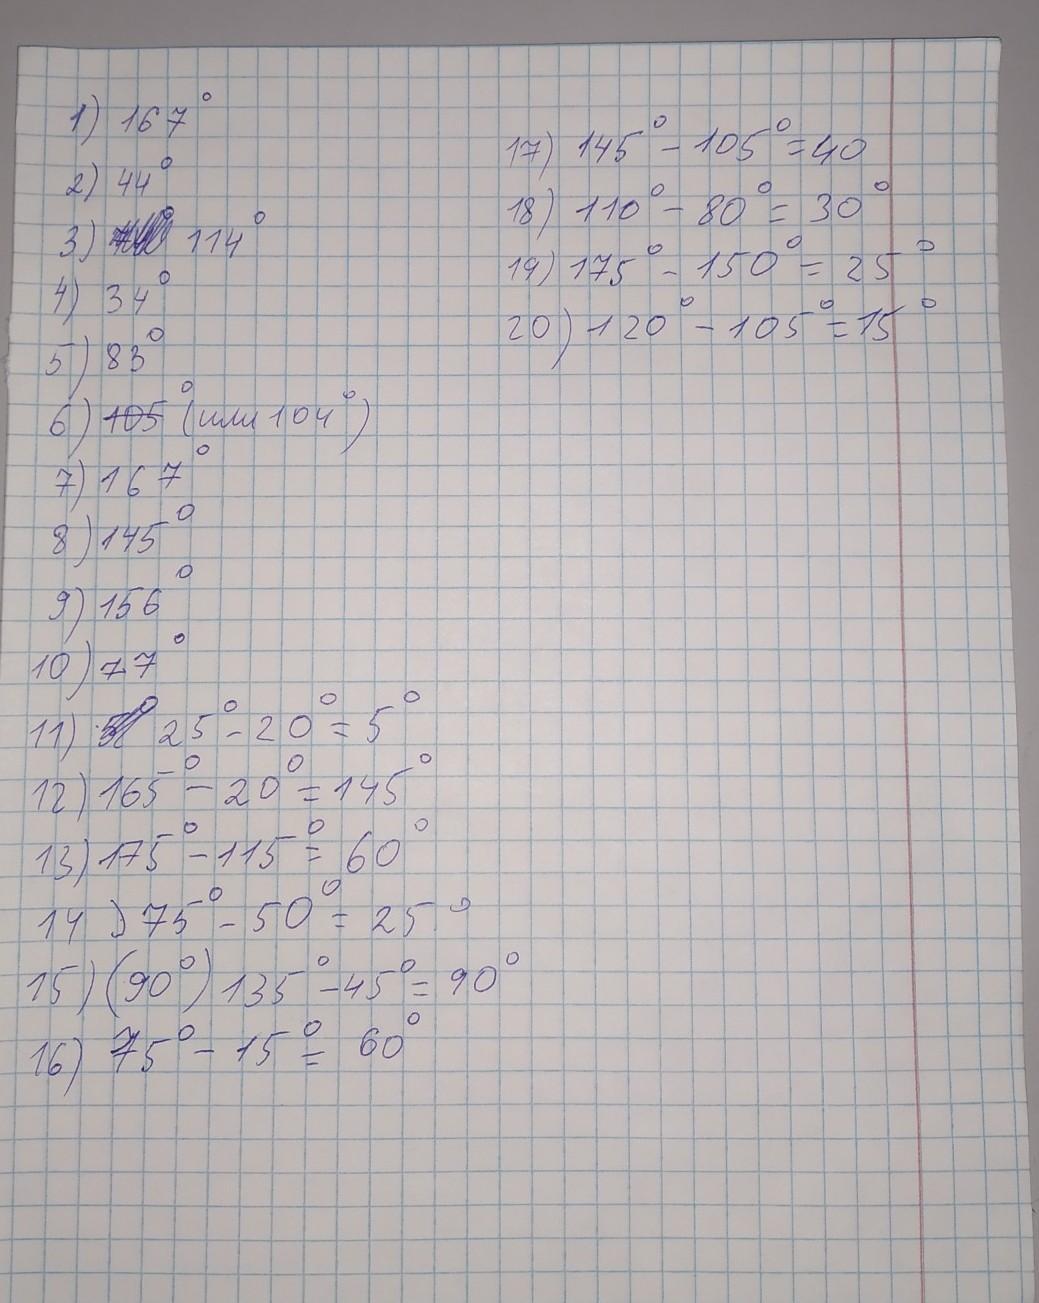 1) 167°
2) 44°
3) 114°
4) 34°
5) 83°
6) 105° (или 104°)
7) 167°
8) 145°
9) 156°
10) 77°
11) 25° - 20° = 5°
12) 165° - 20° = 145°
13) 175° - 115° = 60°
14) 75° - 50° = 25°
15) (90°) 135° - 45° = 90°
16) 75° - 15° = 60°
17) 145° - 105° = 40
18) 110° - 80° = 30°
19) 175° - 150° = 25°
20) 120° - 105° = 15°